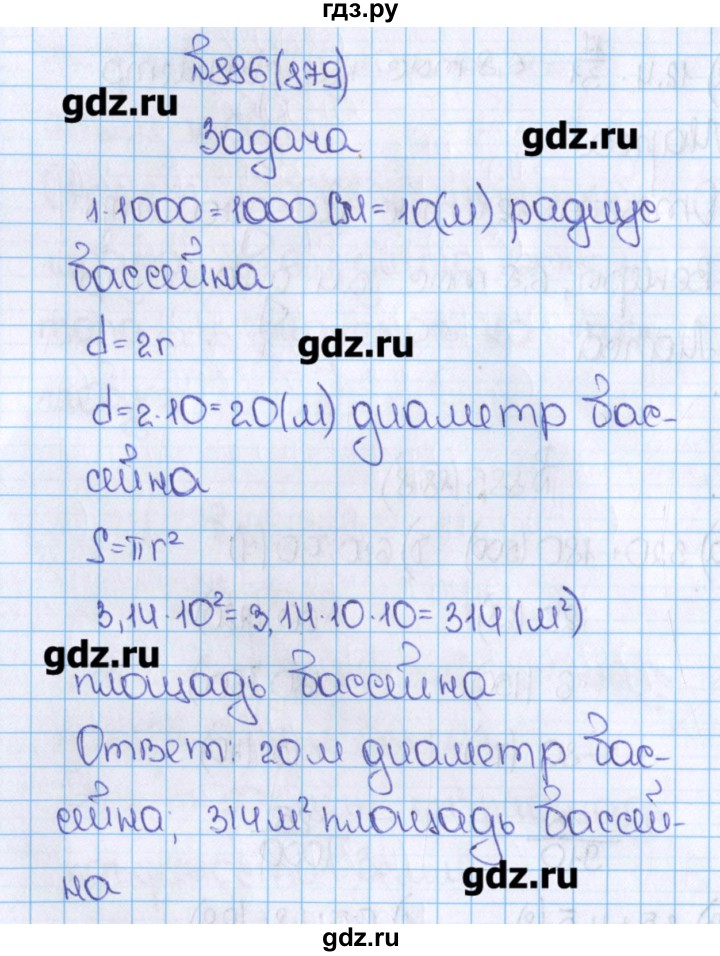 гдз.ру
№886(879)
gdz.ru
Задача
gdz.ru
1·1000=1000 см=10(м) радиус
бассейна
d=2r
gdz.ru
d=2·10=20(м) диаметр бас-
сейна
S=πr²
3,14·10²=3,14·10·10=314(м²)
gdz.ru
площадь бассейна
Ответ: 20м диаметр бас-
сейна; 314м² площадь бассей-
на
gdz.ru
gdz.ru